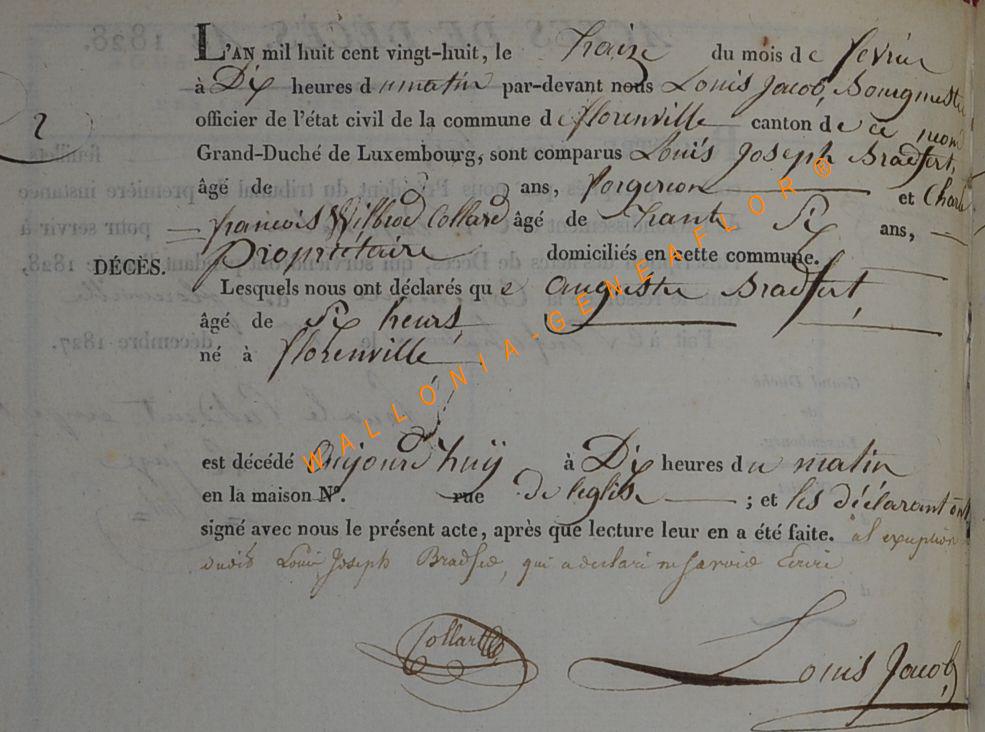 2
L'AN mil huit cent vingt-huit, le traize du mois de fevrier
à Dix heures du matin par-devant nous Louis Jacob, Bourgmestre
officier de l'état civil de la commune de florenville canton de ce nom
Grand-Duché de Luxembourg, sont comparus Louis Joseph Bradfert,
âgé de ans, forgeron et Charle
francois Wilbrod Collard âgé de trante Six ans,
Propriétaire domiciliés en cette commune.
DÉCÈS.
Lesquels nous ont déclarés que augustre Bradfert,
âgé de Six heurs,
né à florenville
est décédé aujourd'huÿ à Dix heures du matin
en la maison N°. rue De leglise ; et les déclarant ont
signé avec nous le présent acte, après que lecture leur en a été faite. a l'exeption
dudit Louis Joseph Bradfer, qui a declaré ne savoir Ecrire
Collard
Louis Jacob,
WALLONIA-GENEAFLOR®